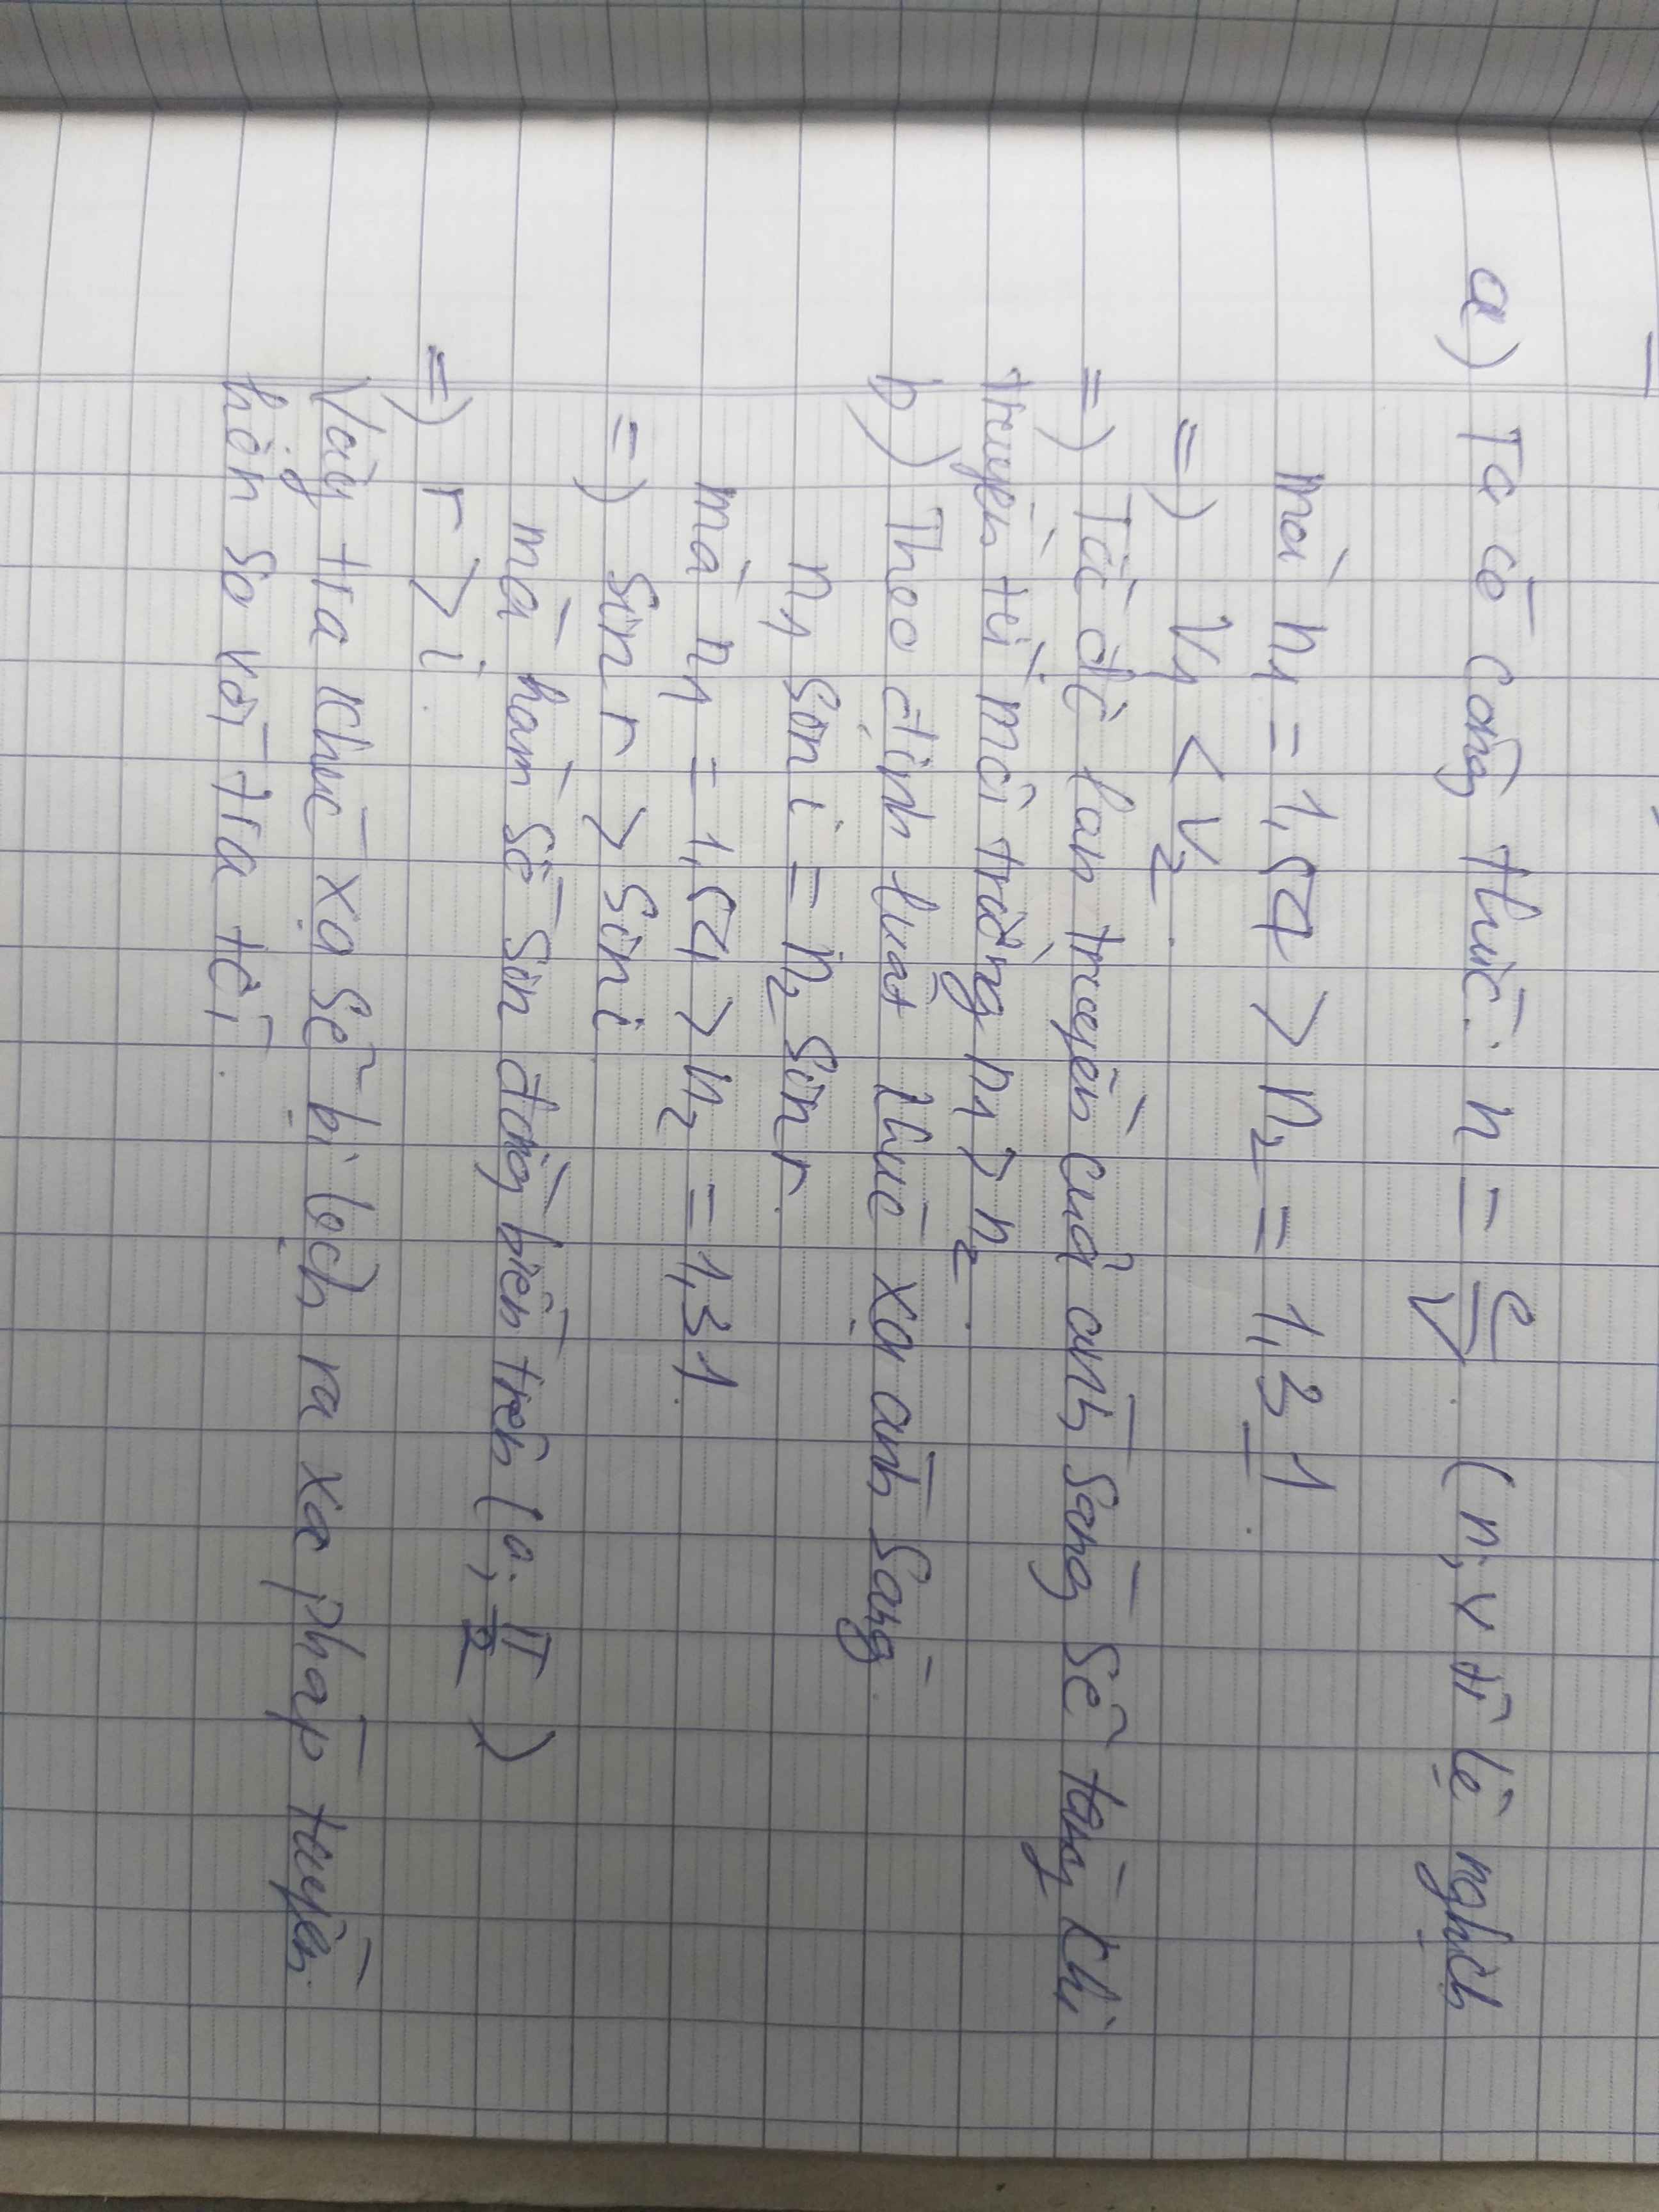 a) Ta có công thức: n = c/v. (n, v tỉ lệ nghịch
mà n1 = 1,54 > n2 = 1,31.
=) V1 < V2.
=) Tốc độ lan truyền của ánh sáng sẽ tăng khi
truyền từ môi trường n1 > n2.
b) Theo định luật khúc xạ ánh sáng.
n1 sin i = n2 sin r.
mà n1 = 1,54 > n2 = 1,31.
=) sin r > sin i.
mà hàm số sin đồng biến trên (0; π/2)
=) r > i.
Vậy tia khúc xạ sẽ bị lệch ra xa pháp tuyến.
hơn so với tia tới.